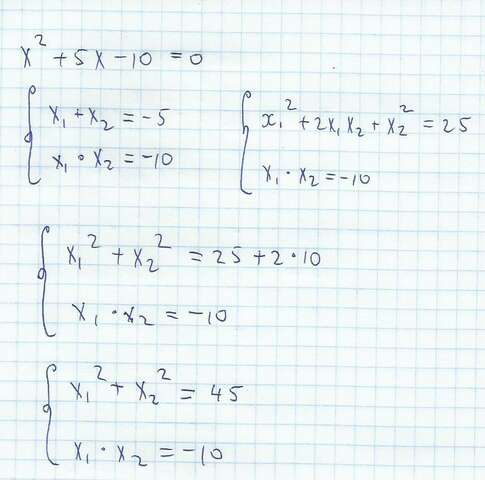 x² + 5x - 10 = 0
x₁ + x₂ = -5
x₁ · x₂ = -10
x₁² + 2x₁x₂ + x₂² = 25
x₁ · x₂ = -10
x₁² + x₂² = 25 + 2·10
x₁ · x₂ = -10
x₁² + x₂² = 45
x₁ · x₂ = -10